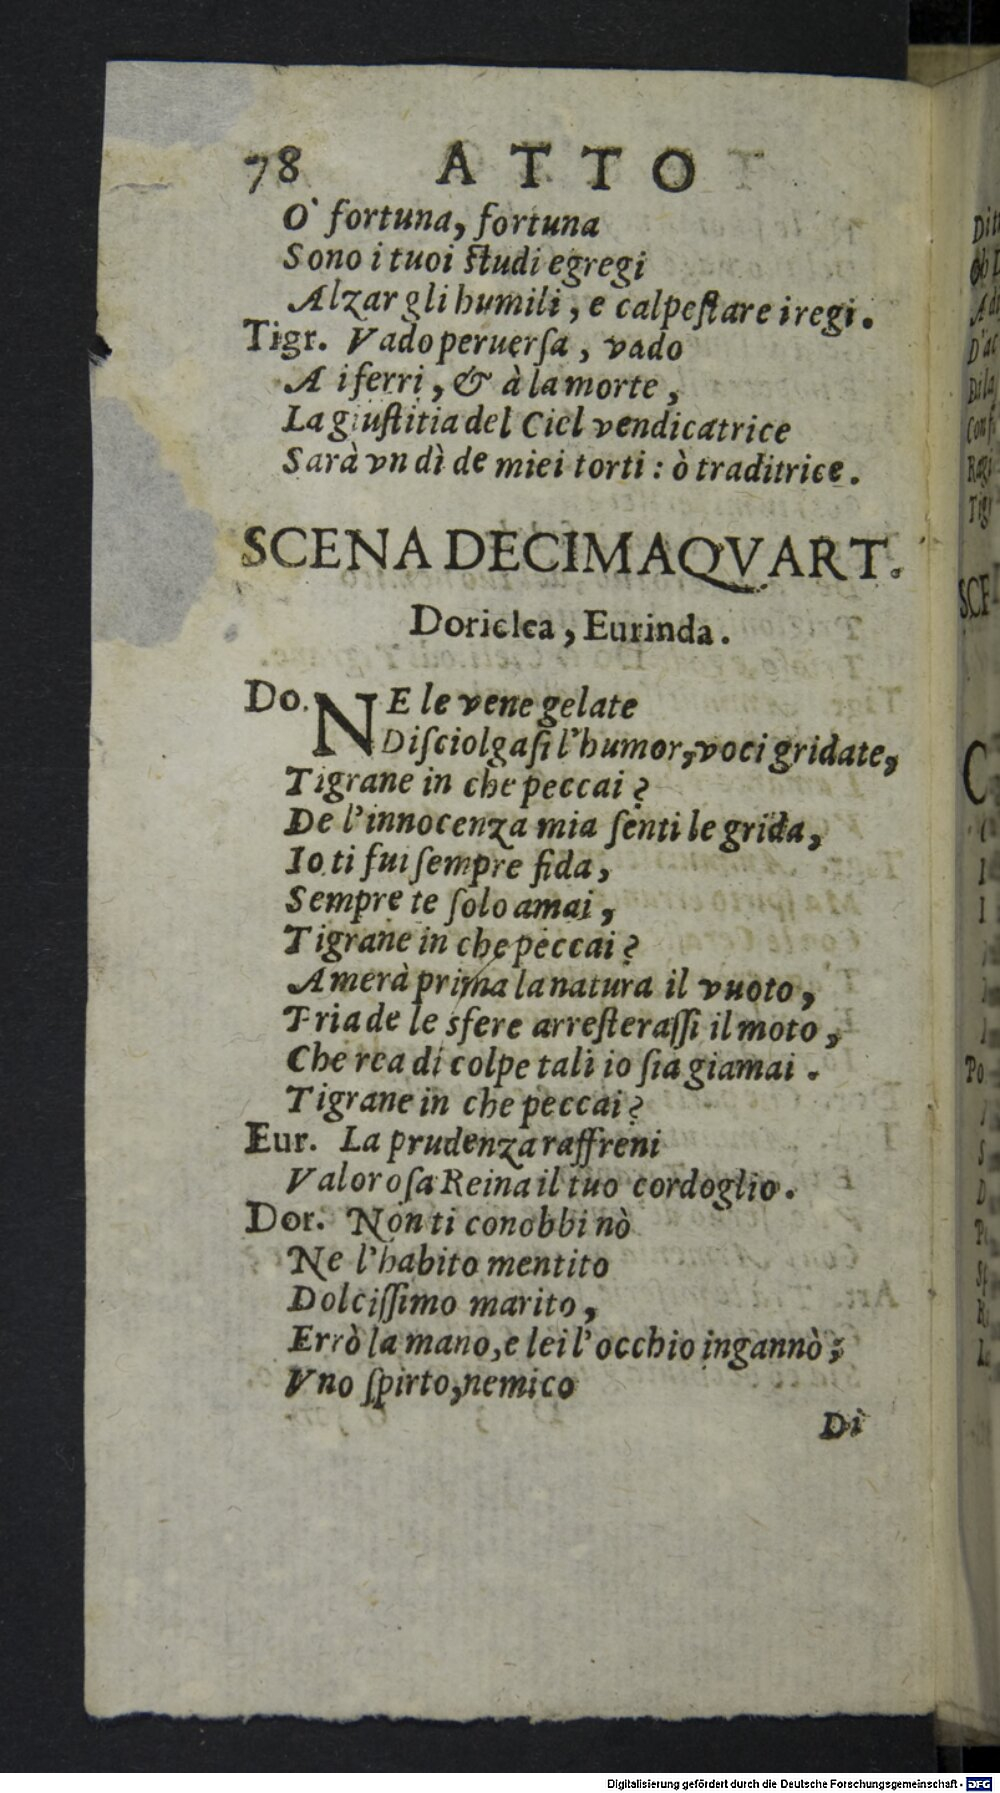 78 ATTO
O' fortuna, fortuna
Sono i tuoi ſtudi egregi
Alzar gli humili, e calpeſtare i regi.
Tigr. Vado peruerſa, vado
A i ferri, & à la morte,
La giuſtitia del Ciel vendicatrice
Sarà vn dì de miei torti: ò traditrice.
SCENA DECIMAQVART.
Doriclea, Eurinda.
Do. NE le vene gelate
Diſciolgaſi l'humor, voci gridate,
Tigrane in che peccai?
De l'innocenza mia ſenti le grida,
Io ti fui ſempre fida,
Sempre te ſolo amai,
Tigrane in che peccai?
Amerà prima la natura il vuoto,
Fria de le sfere arreſteraſſi il moto,
Che rea di colpe tali io ſia giamai.
Tigrane in che peccai?
Eur. La prudenza raffreni
Valoroſa Reina il tuo cordoglio.
Dor. Non ti conobbi nò
Ne l'habito mentito
Dolciſſimo marito,
Errò la mano, e lei l'occhio ingannò;
Vno ſpirto, nemico
Di
Dit
A
D'ac
Dila
Conf
Ragi
Tigr
SCE
C
Po
Digitalisierung gefördert durch die Deutsche Forschungsgemeinschaft - DFG